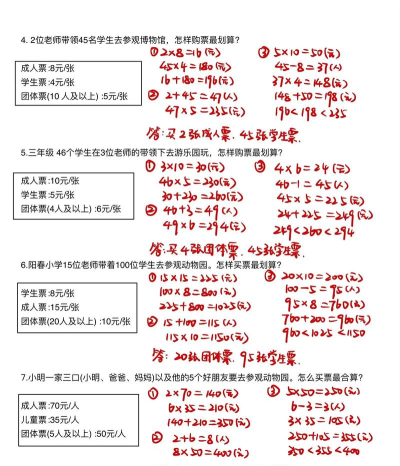 4. 2位老师带领45名学生去参观博物馆，怎样购票最划算？
成人票:8元/张
学生票:4元/张
团体票(10 人及以上) :5元/张
① 2×8=16(元)
45×4=180(元)
16+180=196(元)
② 2+45=47(人)
47×5=235(元)
③ 5×10=50(元)
45-8=37(人)
37×4=148(元)
148+50=198(元)
196<198<235
答:买2张成人票,45张学生票.
5.三年级 46个学生在3位老师的带领下去游乐园玩，怎样购票最划算？
成人票:10元/张
学生票:5元/张
团体票(4人及以上) :6元/张
① 3×10=30(元)
46×5=230(元)
30+230=260(元)
② 46+3=49(人)
49×6=294(元)
③ 4×6=24(元)
46-1=45(人)
45×5=225(元)
24+225=249(元)
249<260<294
答:买4张团体票,45张学生票.
6.阳春小学15位老师带着100位学生去参观动物园。怎样买票最划算？
学生票:8元/张
成人票:15元/张
团体票(20人及以上) :10元/张
① 15×15=225(元)
100×8=800(元)
225+800=1025(元)
② 15+100=115(人)
115×10=1150(元)
③ 20×10=200(元)
100-5=95(人)
95×8=760(元)
760+200=960(元)
960<1025<1150
答: 20张团体票,95张学生票.
7.小明一家三口(小明、爸爸、妈妈)以及他的5个好朋友要去参观动物园。怎么买票最合算？
成人票:70元/人
儿童票:35元/人
团体票(5人及以上) :50元/人
① 2×70=140(元)
6×35=210(元)
140+210=350(元)
② 2+6=8(人)
8×50=400(元)
③ 5×50=250(元)
6-3=3(人)
3×35=105(元)
250+105=355(元)
350<355<400